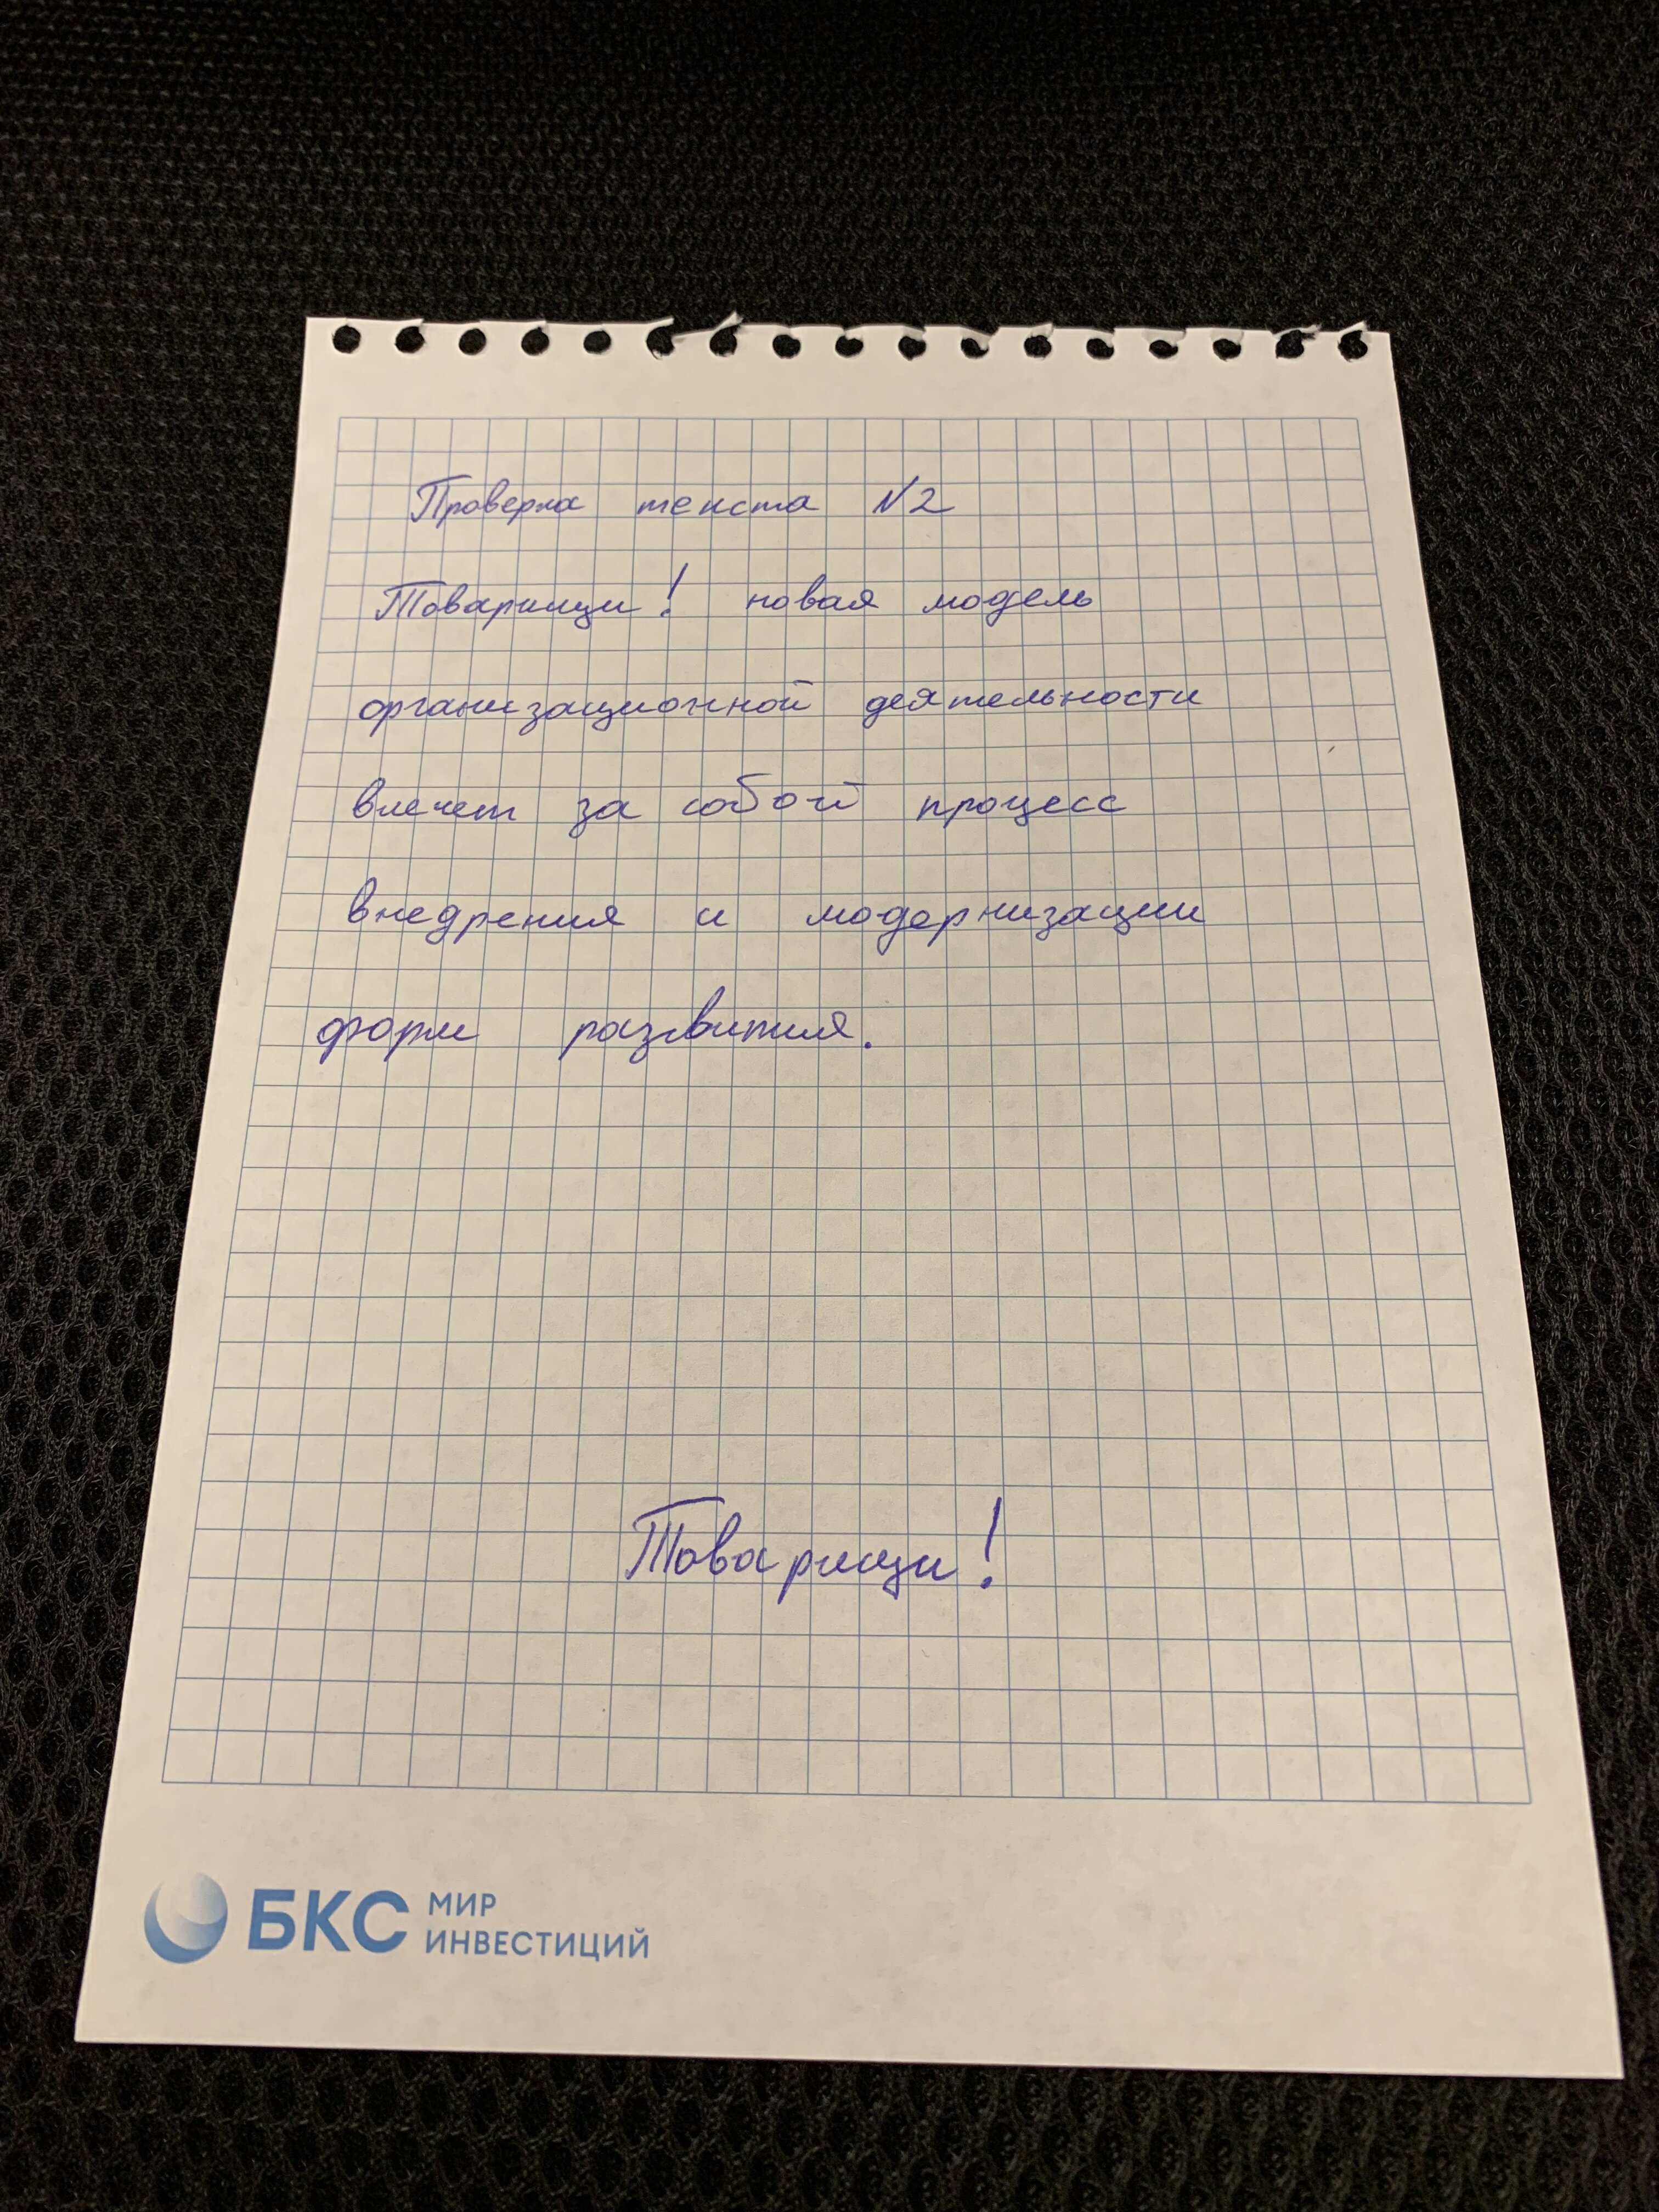 Проверка текста №2
Товарищи! новая модель
организационной деятельности
влечет за собой процесс
внедрения и модернизации
форм развития.
Товарищи!
БКС МИР
ИНВЕСТИЦИЙ